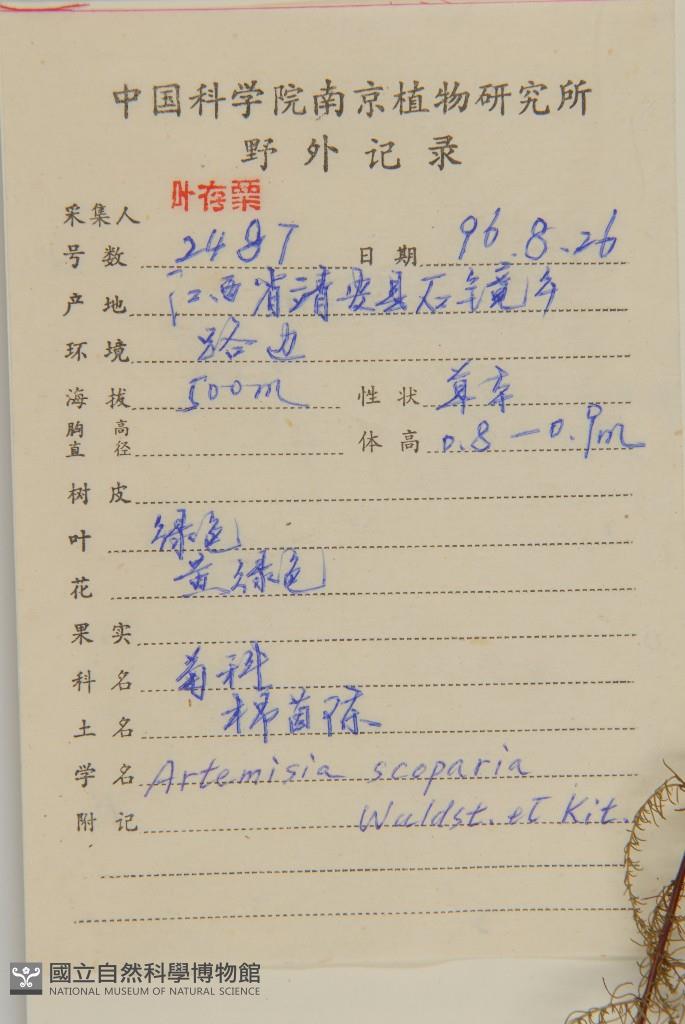 中国科学院南京植物研究所
野外记录
采集人 叶存粟
号数 2487 日期 96.8.26
产地 江西省靖安县石镜乡
环境 路边
海拔 500m 性状 草本
胸高直径 体高 0.8—0.9m
树皮
叶 绿色
花 黄绿色
果实
科名 菊科
土名 棉茵陈
学名 Artemisia scoparia
附记 Waldst. et Kit.
國立自然科學博物館
NATIONAL MUSEUM OF NATURAL SCIENCE